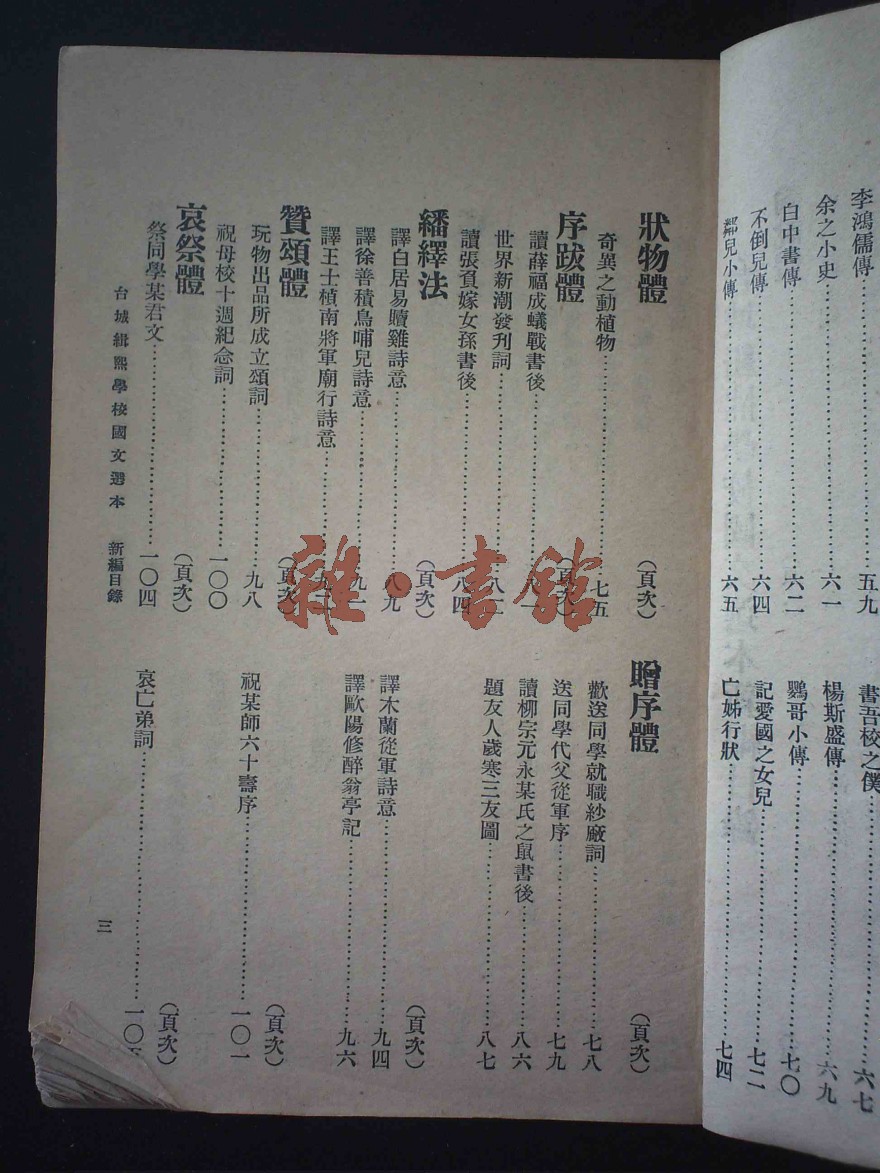 李鴻儒傳 五九
書吾校之僕 六七
余之小史 六一
楊斯盛傳 六九
白中書傳 六二
鸚哥小傳 七〇
不倒兒傳 六四
記愛國之女兒 七二
鄰兒小傳 六五
亡姊行狀 七四
狀物體 (頁次)
奇異之動植物 七五
贈序體 (頁次)
歡送同學就職紗廠詞 七八
送同學代父從軍序 七九
序跋體 (頁次)
讀薛福成蟻戰書後
讀柳宗元永某氏之鼠書後 八六
世界新潮發刊詞 八二
題友人歲寒三友圖 八七
讀張貟嫁女孫書後 八四
繙繹法 (頁次)
(頁次)
譯白居易贖雞詩意 八九
譯木蘭從軍詩意 九四
譯徐善積鳥哺兒詩意 九一
譯歐陽修醉翁亭記 九六
譯王士楨南將軍廟行詩意
贊頌體 (頁次)
(頁次)
玩物出品所成立頌詞 九八
祝某師六十壽序 一〇一
祝母校十週紀念詞 一〇〇
哀祭體 (頁次)
(頁次)
祭同學某君文 一〇四
哀亡弟詞 一〇五
台城緝熙學校國文選本 新編目錄 三
雜·書館